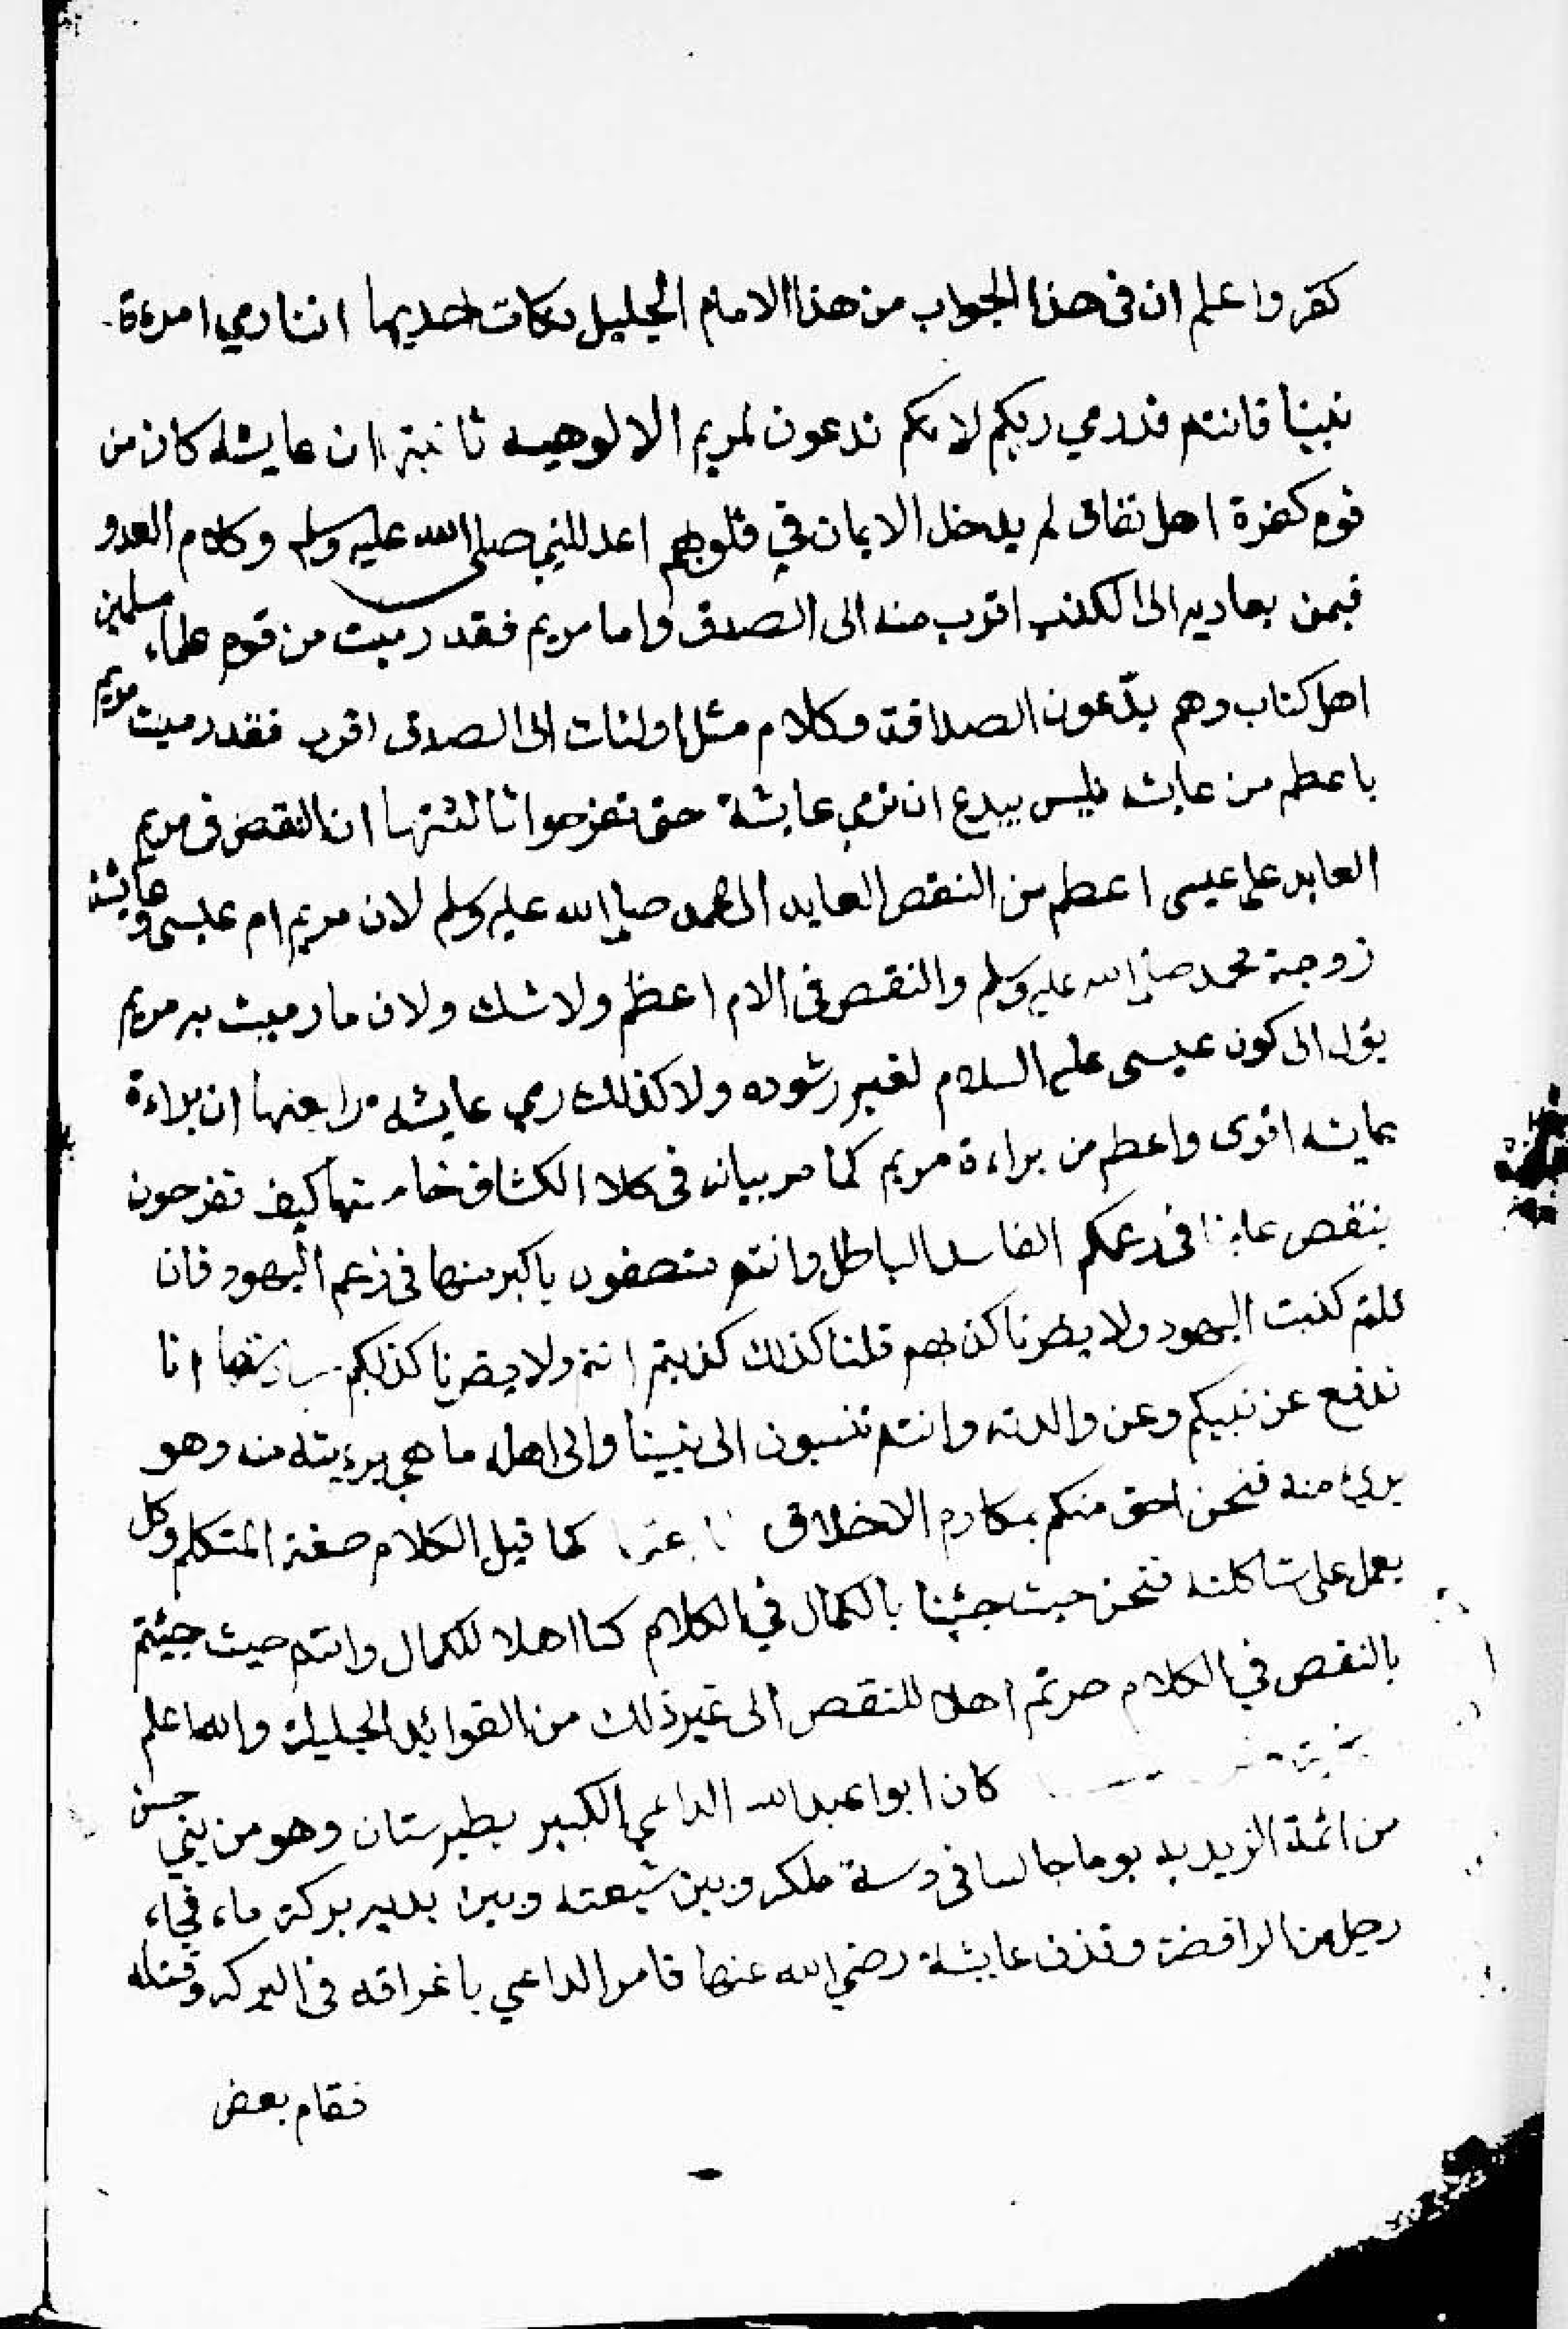 كفر واعلم ان فى هذا الجواب من هذا الامام الجليل نكات احديها اننا رمي امرءة
نبينا فانتم قد رمي ربكم لانكم تدعون لمريم الالوهيه ثانيتها ان عايشه كان من
قوم كفرة اهل نفاق لم يدخل الايمان في قلوبهم اعد للنبي صلى الله عليه وسلم وكلام العدو
فيمن يعاديه الى الكذب اقرب منه الى الصدق واما مريم فقد رميت من قوم علماء مسلمين
اهل كتاب وهم يدّعون الصداقة وكلام مثل اولئك الى الصدق اقرب فقد رميت مريم
باعظم من عايشه فليس ببدع ان ترمي عايشة حتى تفرحوا ثالثتها ان النقص فى مريم
العايد على عيسى اعظم من النقص العايد الى محمد صلى الله عليه وسلم لان مريم ام عيسى وعايشة
زوجة محمد صلى الله عليه وسلم والنقص فى الام اعظم ولا شك ولان ما رميت به مريم
يؤل الى كون عيسى عليه السلام لغير رشوده ولا كذلك رمي عايشه رابعتها ان براءة
عايشه اقوى واعظم من براءة مريم كما مر بيانه فى كلام الكشاف خامستها كيف تفرحون
بنقص علينا فى زعمكم الفاسد الباطل وانتم متصفون باكبر منها فى زعم اليهود فان
قلتم كذبت اليهود ولا يضرنا كذبهم قلنا كذلك كذبتم انتم ولا يضرنا كذبكم سادستها انا
ندفع عن نبيكم وعن والدته وانتم تنسبون الى نبينا والى اهله ما هي بريئة منه وهو
بريء منه فنحن احق منكم بمكارم الاخلاق سابعتها كما قيل الكلام صفة المتكلم وكل
يعمل على شاكلته فنحن حيث جئنا بالكمال في الكلام كنا اهلا للكمال وانتم حيث جيئتم
بالنقص في الكلام صرتم اهلا للنقص الى غير ذلك من الفوائد الجليلة والله اعلم
كان ابوا عبد الله الداعي الكبير بطبرستان وهو من بني حسن
من ائمة الزيديه يوما جالسا فى دسة ملكه وبين شيعته وبين يديه بركة ماء فجاء
رجل من الرافضة وقذف عايشة رضي الله عنها فامر الداعي باغراقه فى البركه وقتله
فقام بعض